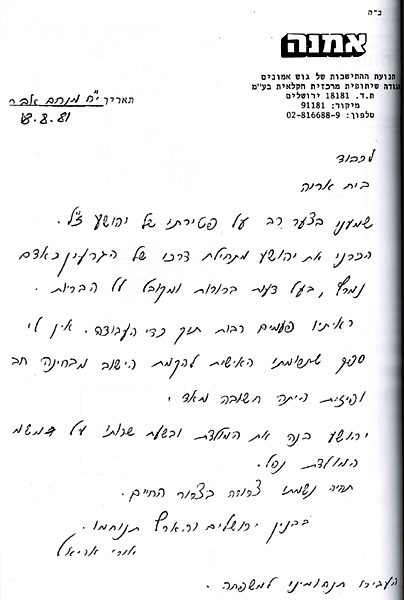 ב"ה
אמנה
תנועת ההתישבות של גוש אמונים
אגודה שיתופית מרכזית חקלאית בע"מ
ת.ד. 18181 ירושלים
מיקוד: 91181
טלפון: 02-816688-9
תאריך י"ח מנחם אב
18.8.81
לכבוד
בית אריה
שמענו בצער רב על פטירתו של יהושע ז"ל.
הכרנו את יהושע מתחילת דרכו של הגרעין כאדם
נמרץ, בעל דעות ברורות ומקובל על הבריות.
ראיתיו פעמים רבות תוך כדי העבודה. אין לי
ספק שתרומתו האישית להקמת הישוב מבחינה
ופיזית היתה חשובה מאד.
יהושע בנה את המולדת ובשעת שרותו על משמר
המולדת נפל.
תהיה נשמתו צרורה בצרור החיים.
בבנין ירושלים והארץ תנוחמו.
אורי אריאל
העבירו תנחומינו למשפחה.